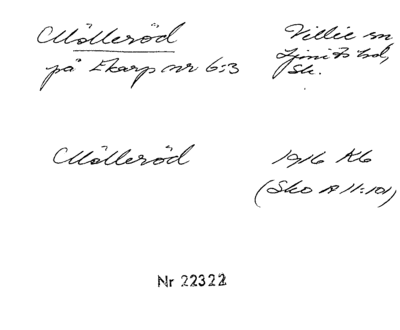 Mölleröd
på Ekarp nr 6:3
Villie sn
Ljunits hd,
Sk.
Mölleröd
1916 Kb
(Sko A 11:101)
Nr 22322